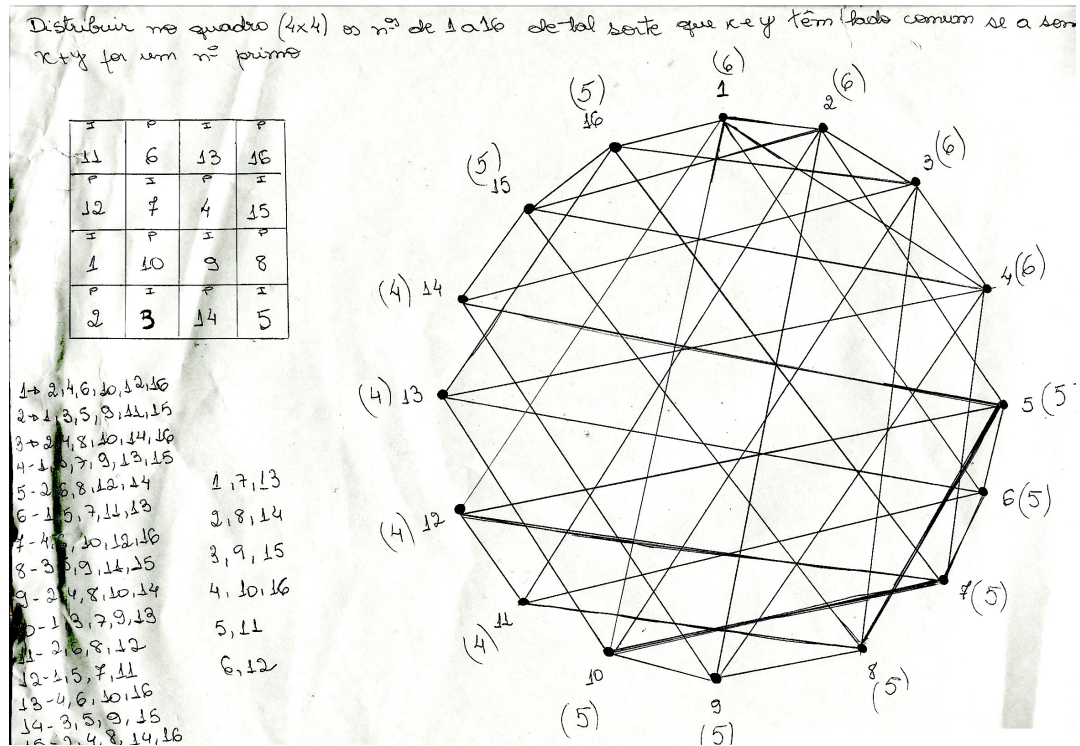 Distribuir no quadro (4x4) os nºs de 1 a 16 de tal sorte que x e y têm lado comum se a som
x+y for um nº primo
I P I P
11 6 13 16
P I P I
12 7 4 15
I P I P
1 10 9 8
P I P I
2 3 14 5
1→ 2,4,6,10,12,16
2→1,3,5,9,11,15
3→2,4,8,10,14,16
4-1,3,7,9,13,15
5-2,6,8,12,14
6-1,5,7,11,13
7-4,6,10,12,16
8-3,5,9,11,15
9-2,4,8,10,14
0-1,3,7,9,13
11-2,6,8,12
12-1,5,7,11
13-4,6,10,16
14-3,5,9,15
15-2,4,8,14,16
1,7,13
2,8,14
3,9,15
4,10,16
5,11
6,12
(6)
1
2(6)
3(6)
4(6)
5(5)
6(5)
7(5)
8
(5)
9
(5)
10
(5)
11
(4)
12
(4)
(4) 13
(4) 14
(5)
15
(5)
16